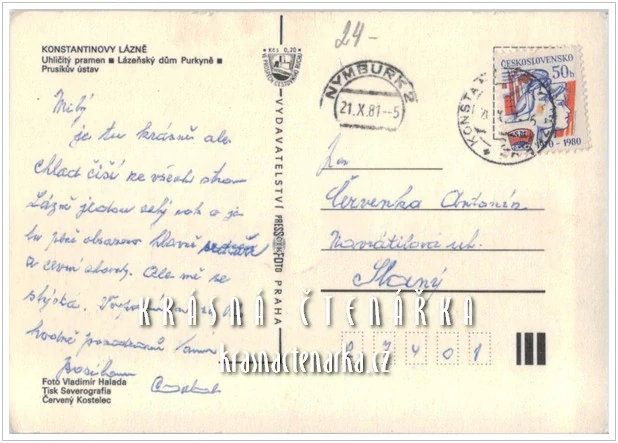 KONSTANTINOVY LÁZNĚ
Uhličitý pramen ■ Lázeňský dům Purkyně ■
Prusíkův ústav
Milý
je tu krásně ale
chlad čiší ze všech stran
Lázně jedou celý rok a je
tu plně obsazeno hlavně
a cévní choroby. Ale mě se
stýská.
hodně pozdravů
Foto Vladimír Halada
Tisk Severografia
Červený Kostelec
Kčs 0,20
VYDAVATELSTVÍ PRESSFOTO PRAHA
24-
NYMBURK 2
21.X.81-5
ČESKOSLOVENSKO
50h
1980
Červenka Antonín
Navrátilova ul.
Slaný
27401
KRÁSNÁ ČTENÁŘKA
krasnactenarka.cz